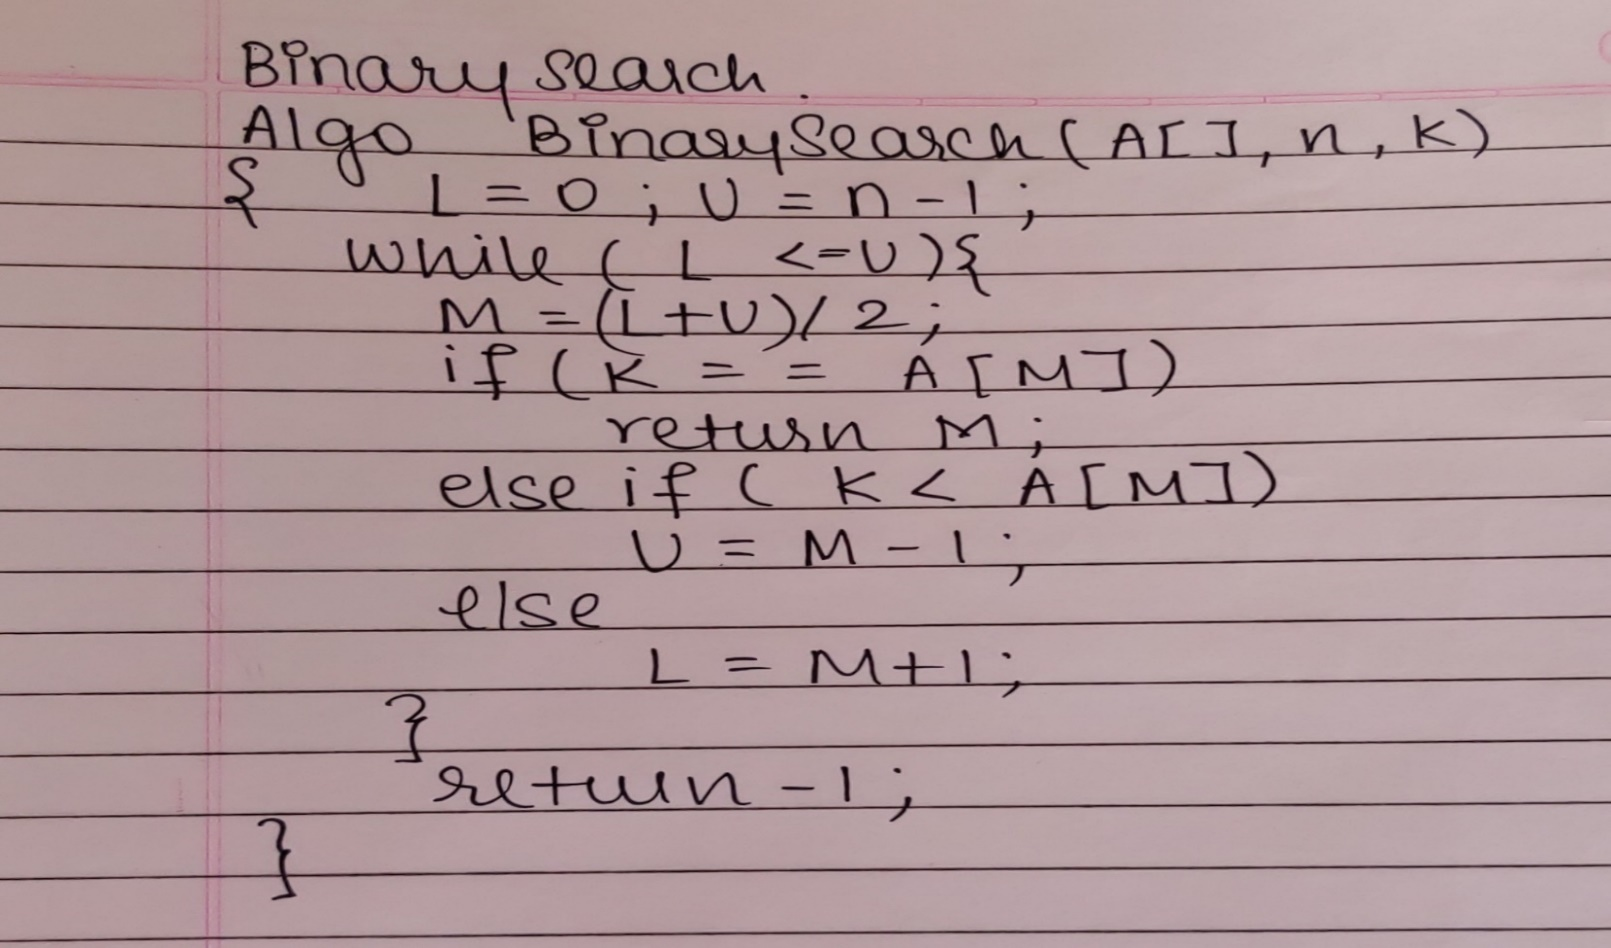 Binary search.
Algo BinarySearch (A[], n, K)
{ L = 0 ; U = n - 1 ;
while ( L <= U ) {
M = (L+U) / 2 ;
if ( K = = A [M])
return M ;
else if ( K < A [M])
U = M - 1 ;
else
L = M+1 ;
}
return -1 ;
}